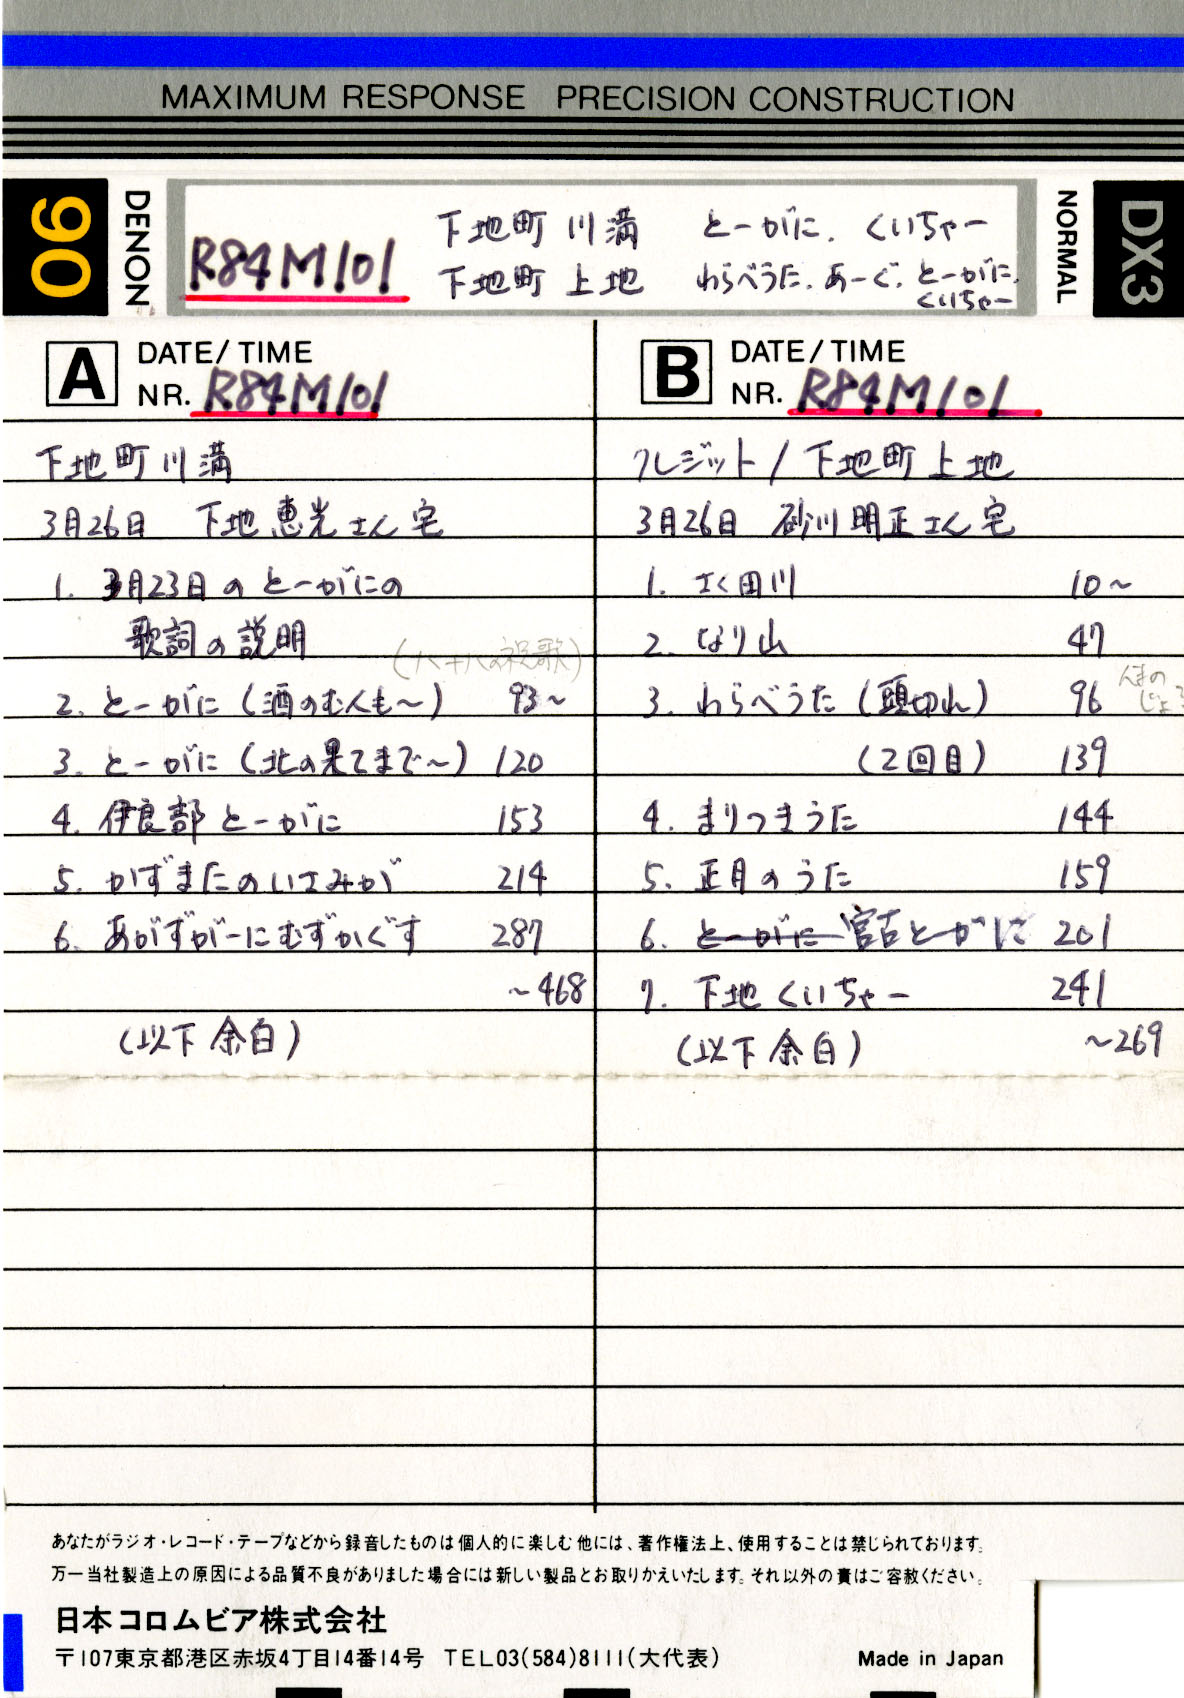 MAXIMUM RESPONSE PRECISION CONSTRUCTION
90 DENON
R84M101
下地町 川満 とーがに、くいちゃー
下地町 上地 わらべうた、あーぐ、とーがに、
くいちゃー
NORMAL
DX3
A DATE/TIME
NR. R84M101
下地町川満
3月26日 下地恵光さん宅
1. 3月23日のとーがにの
歌詞の説明
(八十八の祝歌)
2. とーがに(酒のむんも〜) 93〜
3. とーがに(北の果てまで〜) 120
4. 伊良部とーがに 153
5. かずまたのいさみが 214
6. あがずがーにむずかぐす 287
〜468
(以下余白)
B DATE/TIME
NR. R84M101
クレジット/下地町上地
3月26日 砂川明正さん宅
1. さく田川 10〜
2. なり山 47
3. わらべうた(頭切れ) 96
んまの
じょう
(2回目) 139
4. まりつきうた 144
5. 正月のうた 159
6. とーがに 宮古とーがに 201
7. 下地くいちゃー 241
(以下余白) 〜269
あなたがラジオ・レコード・テープなどから録音したものは個人的に楽しむ他には、著作権法上、使用することは禁じられております。
万一当社製造上の原因による品質不良がありました場合には新しい製品とお取りかえいたします。それ以外の責はご容赦ください。
日本コロムビア株式会社
〒107東京都港区赤坂4丁目14番14号 TEL03(584)8111(大代表)
Made in Japan